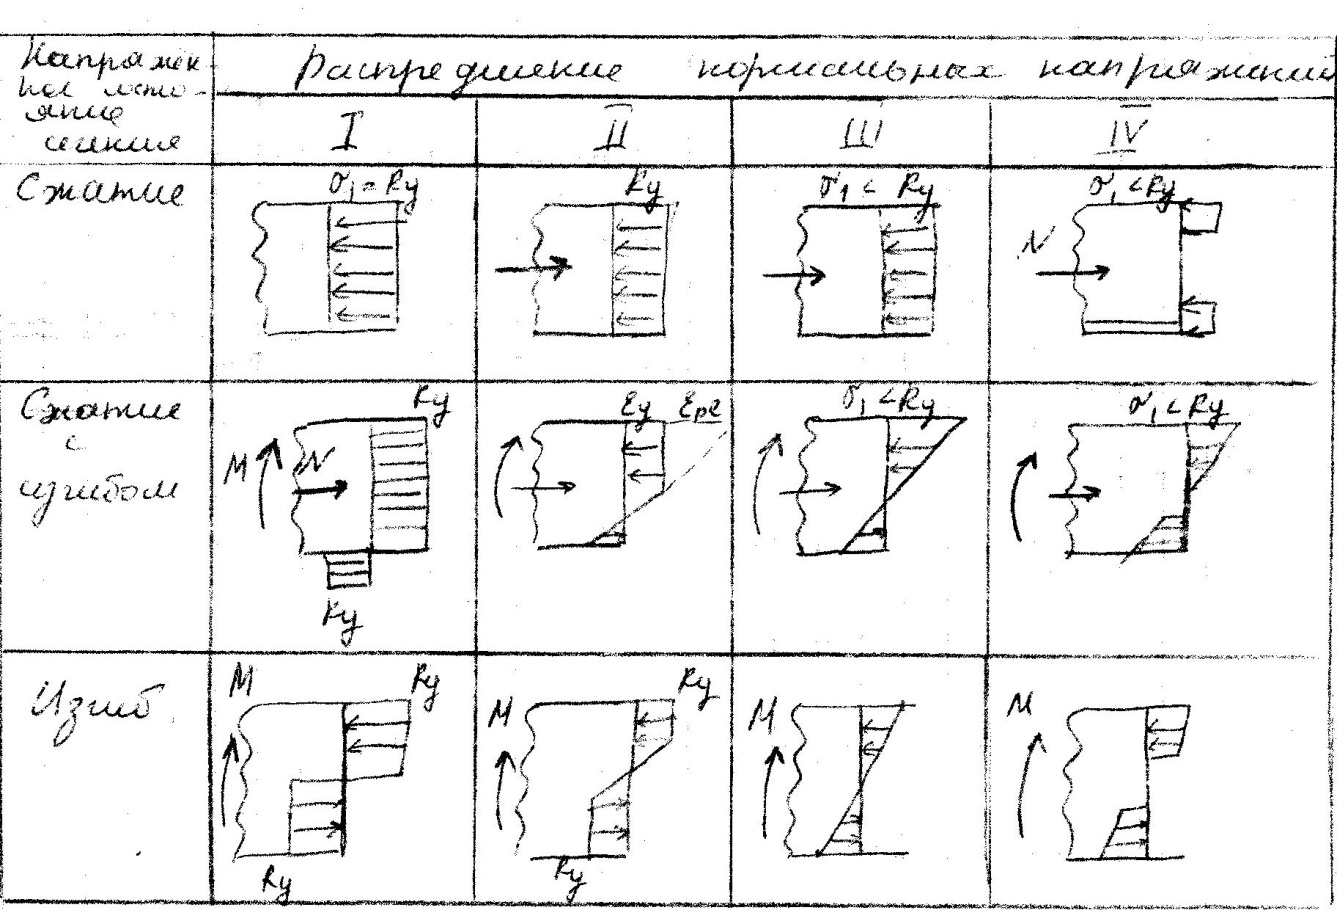 Напряжен-
ное состо-
яние
сечения
Распределение нормальных напряжений
I
II
III
IV
Сжатие
σ₁ = Ry
Ry
σ₁ < Ry
σ₁ < Ry
N
Сжатие
с
изгибом
Ry
M
N
Ry
εy
σ₁ < Ry
σ₁ < Ry
Изгиб
M
Ry
Ry
M
Ry
Ry
M
M